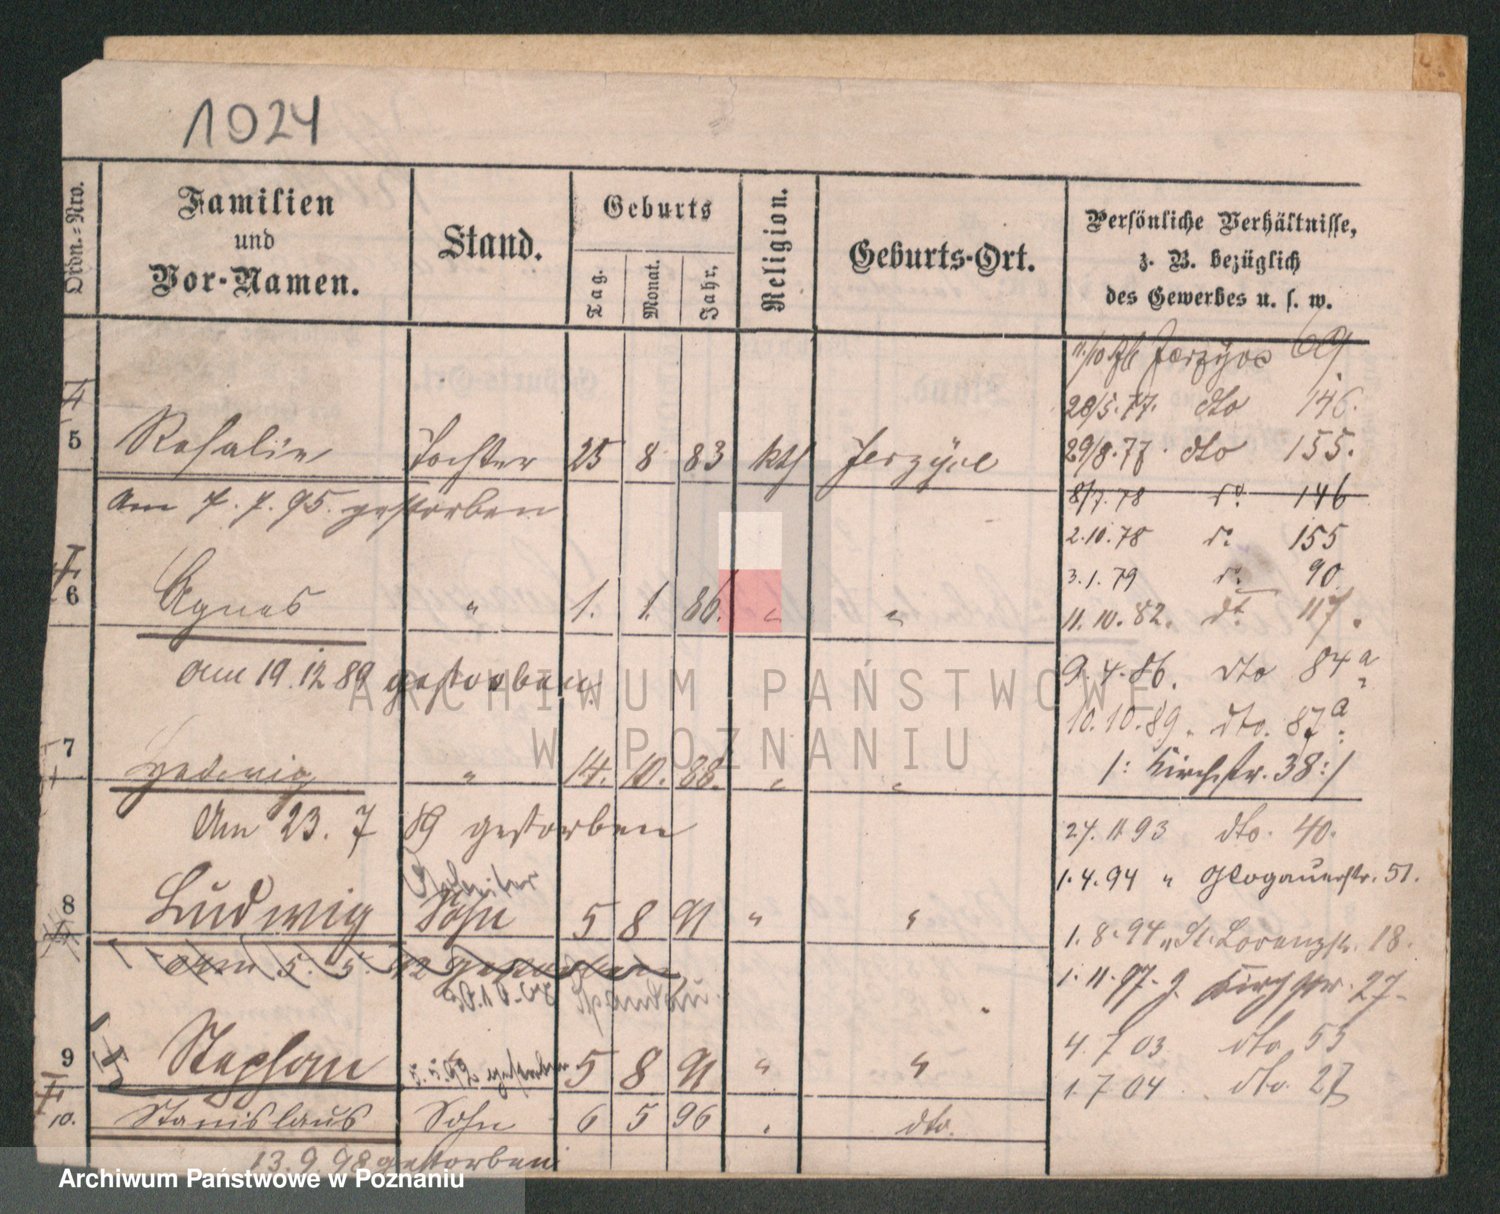 1024
Ordn.-Nro.
Familien und Vor-Namen.
Stand.
Geburts
Tag.
Monat.
Jahr,
Religion.
Geburts-Ort.
Persönliche Verhältnisse,
z. B. bezüglich
des Gewerbes u. s. w.
Jerzyce 69
28/5.77. dto 146.
5 Rosalie Tochter 25 8 83 kth Jerzyce
29/8.77. dto 155.
Am 7.7.95. gestorben
8/7.78 do 146
2.10.78 do 155
3.1.79 do 90
6 Agnes " 1. 1. 86. " "
11.10.82. dto 117.
am 19.12 89 gestorben
9.4.86. dto 84a
10.10.89. dto. 87a
7 Hedwig " 14. 10. 88. " "
/: Kirchstr. 38:/
Am 23.7 89 gestorben
27.11 93 dto. 40.
1.4.94 " Glogauerstr. 51.
8 Ludwig Sohn 5 8 91 " "
1.8.94 " St. Lorenzstr. 18.
am 5. 5. 92 gestorben
1.11.97. J. Kirchstr. 27-
4.7 03 dto 55
9 Stephan 5 8 91 " "
1.7 04 dto. 27
10. Stanislaus Sohn 6 5 96 " dto.
13.9 98 gestorben
ARCHIWUM PAŃSTWOWE
W POZNANIU
Archiwum Państwowe w Poznaniu